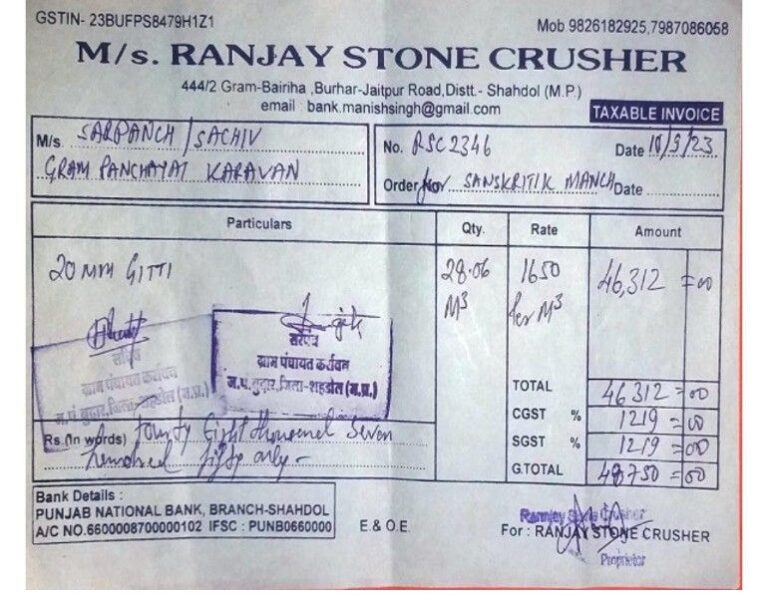 GSTIN- 23BUFPS8479H1Z1
Mob 9826182925,7987086058
M/s. RANJAY STONE CRUSHER
444/2 Gram-Bairiha ,Burhar-Jaitpur Road,Distt.- Shahdol (M.P.)
email : bank.manishsingh@gmail.com
TAXABLE INVOICE
M/s. SARPANCH / SACHIV
GRAM PANCHAYAT KARAVAN
No. RSC2346 Date
Order SANSKRITIK MANCH Date
Particulars Qty. Rate Amount
20 MM GITTI 28.06 1650 46,312 =00
M³ Per M³
सचिव
ग्राम पंचायत कर्रावन
सरपंच
ग्राम पंचायत कर्रावन
ज.प. बुढार,जिला-शहडोल (म.प्र.)
TOTAL 46312=00
CGST % 1219=00
SGST % 1219=00
G.TOTAL 48750=00
Rs.(In words) Eight thousand Seven
fifty only -
Bank Details :
PUNJAB NATIONAL BANK, BRANCH-SHAHDOL
A/C NO.6600008700000102 IFSC : PUNB0660000
E.& O.E.
Stone Crusher
For : RANJAY STONE CRUSHER
Proprietor